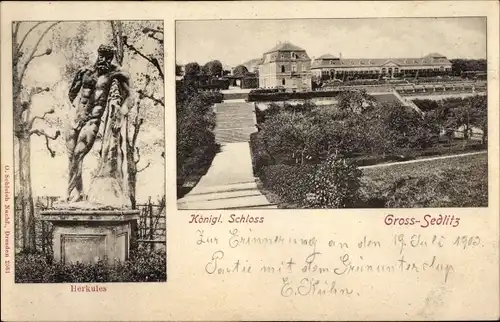 O. Schleich Nachf., Dresden 2361
Herkules
Königl. Schloss Gross-Sedlitz
Zur Erinnerung an den 19 Juli 1903.
Partie mit dem
E. Kühn.